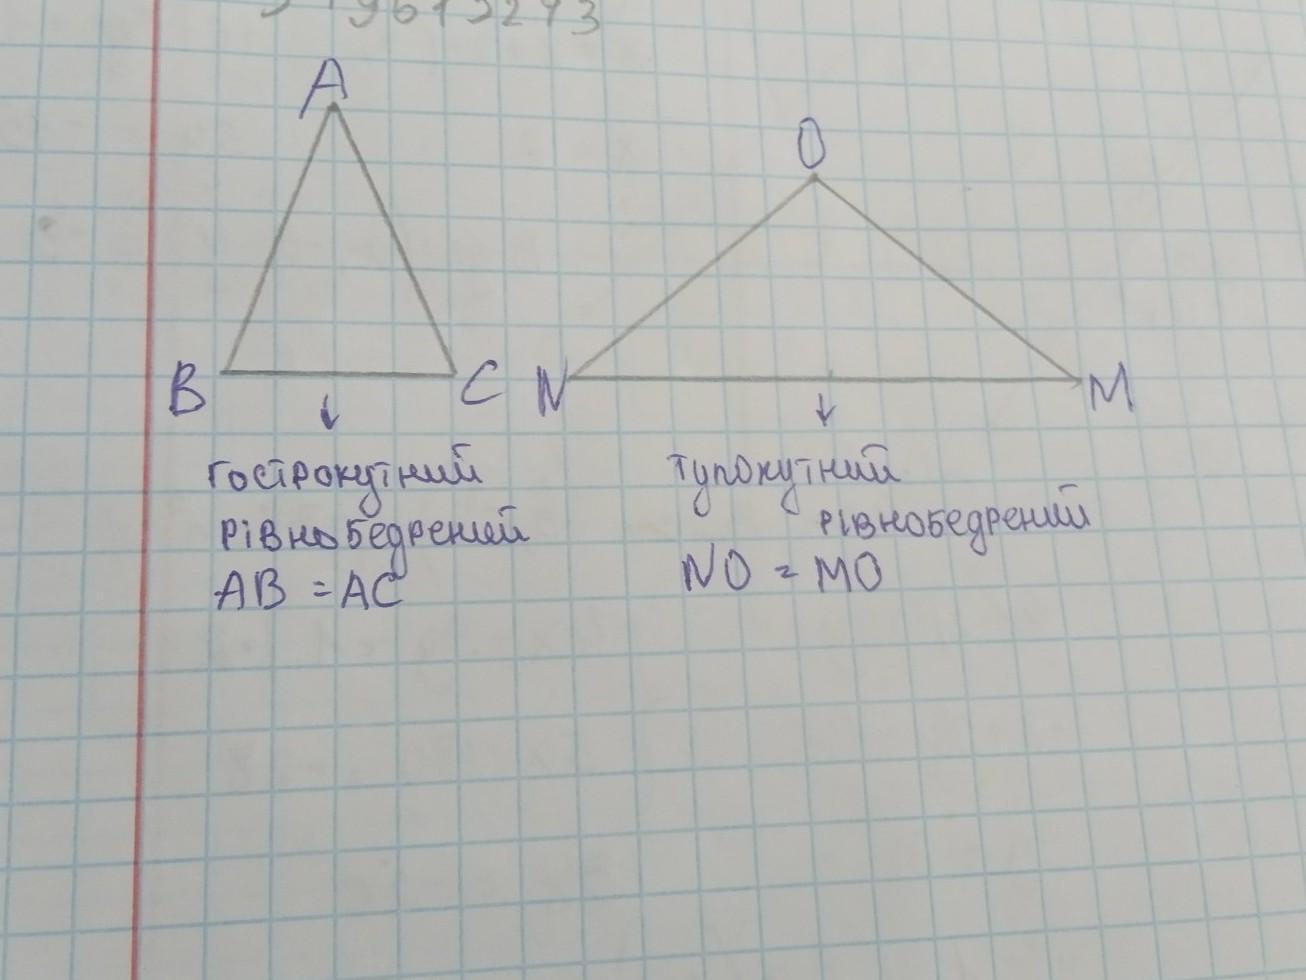 A
O
B
C
N
M
гострокутний
рівнобедрений
AB = AC
тупокутний
рівнобедрений
NO = MO